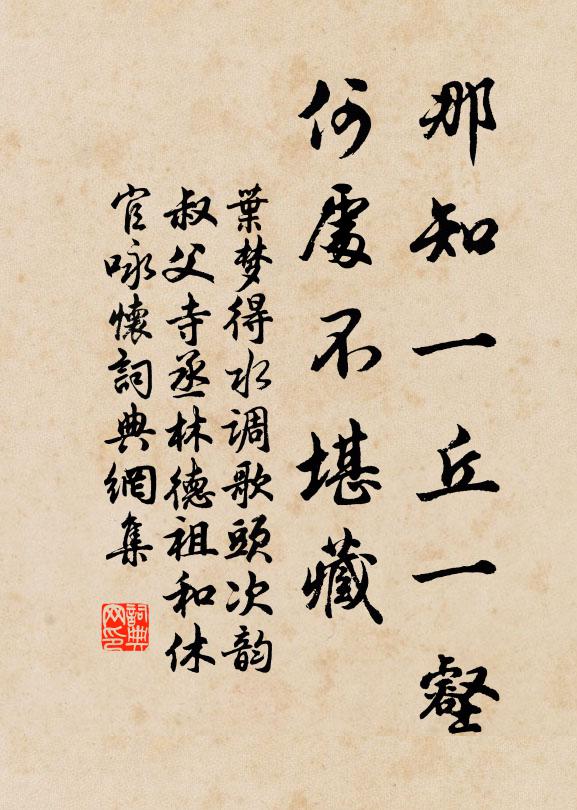 那知一丘一壑
何處不堪藏
葉梦得水调歌頭次韵
叔父寺丞林德祖和休
官咏懷詞典網集
詞典网印